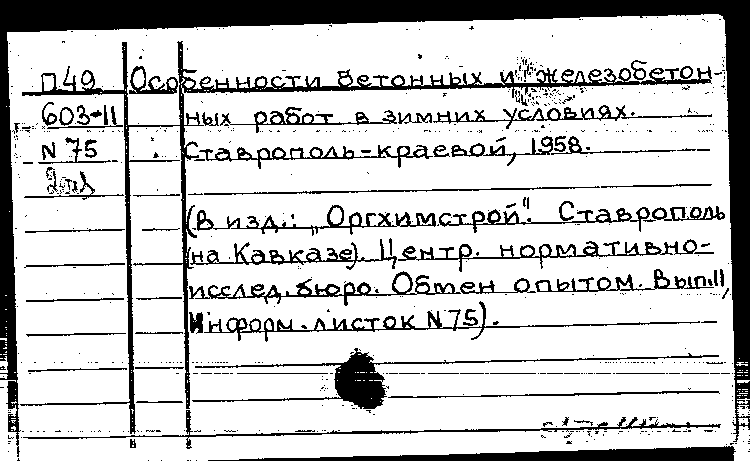 П49 Особенности бетонных и железобетон-
603-11 ных работ в зимних условиях.
N 75 Ставрополь-краевой, 1958.
(В изд.: „Оргхимстрой". Ставрополь
(на Кавказе). Центр. нормативно-
исслед. бюро. Обмен опытом. Вып.11,
Информ. листок N75).